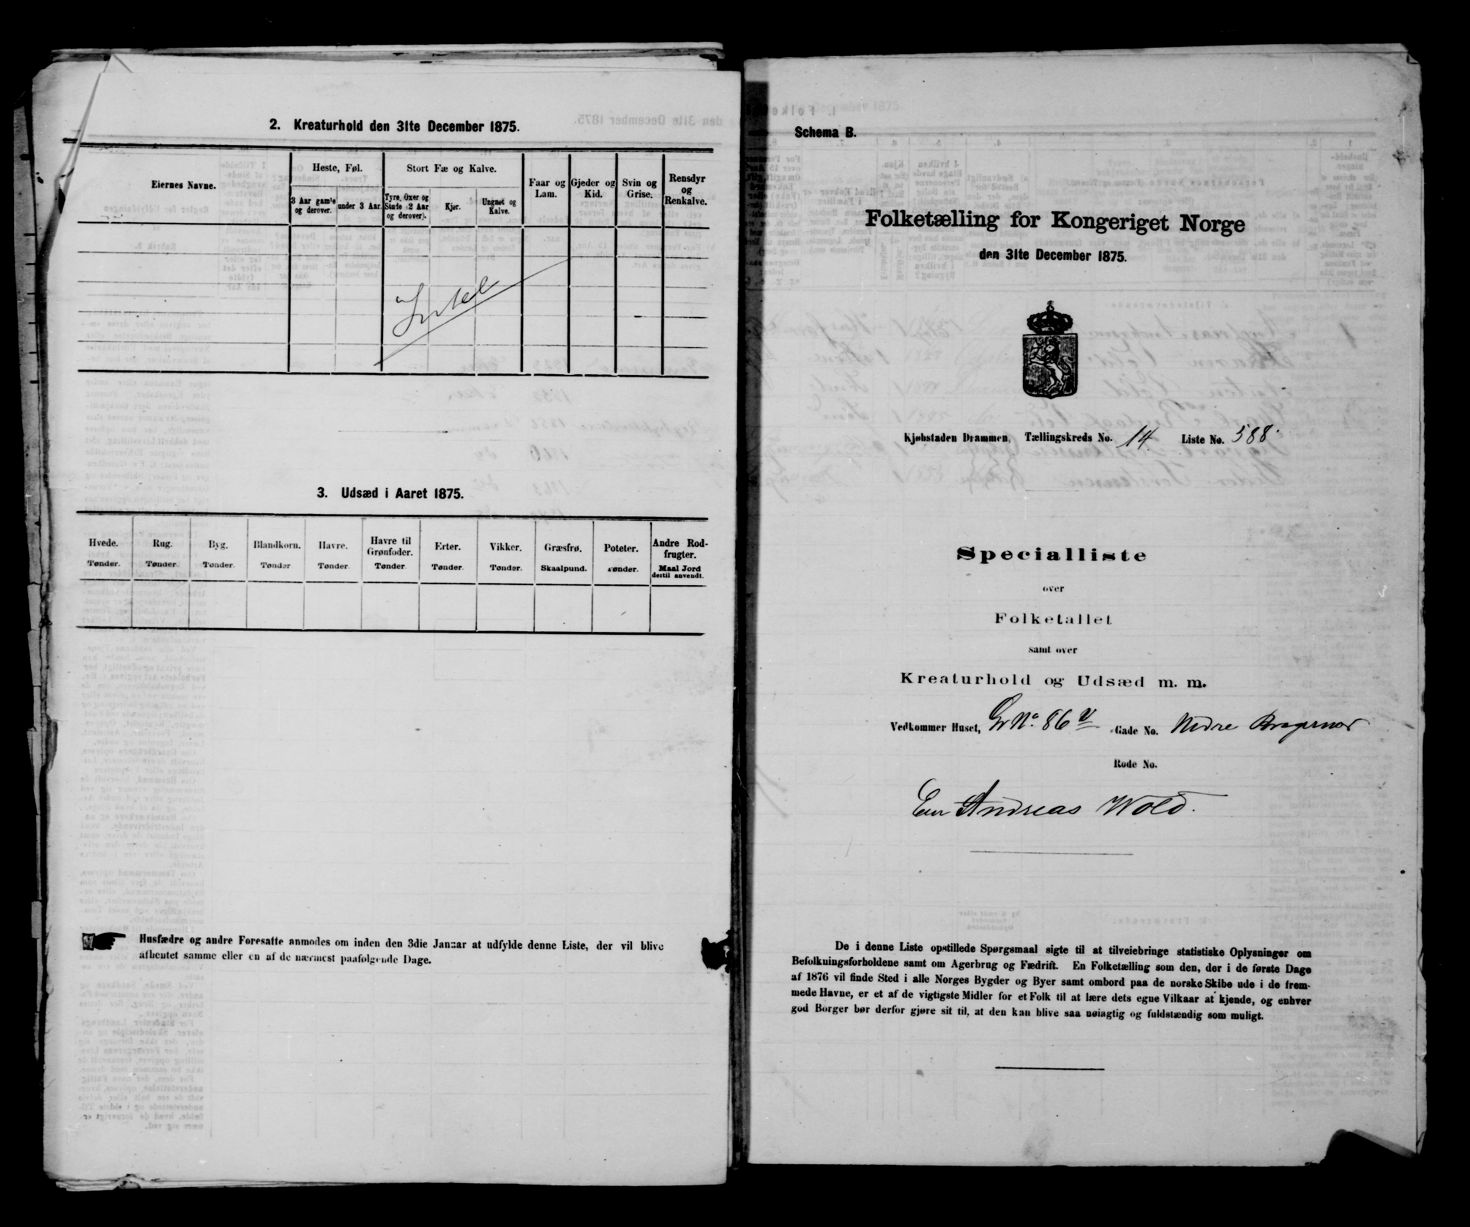 2. Kreaturhold den 31te December 1875.
Eiernes Navne.
Heste, Føl.
Stort Fæ og Kalve.
Faar og Lam.
Gjeder og Kid.
Svin og Grise.
Rensdyr og Renkalve.
3 Aar gamle og derover.
under 3 Aar.
Tyre, Oxer og Stude (2 Aar og derover).
Kjør.
Ungnøt og Kalve.
Intet
3. Udsæd i Aaret 1875.
Hvede. Tønder.
Rug. Tønder.
Byg. Tønder.
Blandkorn. Tønder
Havre. Tønder.
Havre til Grønfoder. Tønder.
Erter. Tønder.
Vikker. Tønder.
Græsfrø. Skaalpund.
Poteter. Tønder.
Andre Rodfrugter. Maal Jord dertil anvendt.
Husfædre og andre Foresatte anmodes om inden den 3die Januar at udfylde denne Liste, der vil blive
afhentet samme eller en af de nærmest paafølgende Dage.
Schema B.
Folketælling for Kongeriget Norge
den 31te December 1875.
Kjøbstaden Drammen, Tællingskreds No. 14 Liste No. 588.
Specialliste
over
Folketallet
samt over
Kreaturhold og Udsæd m. m.
Vedkommer Huset, Gr No. 86 Gade No. Nedre Bragernes
Rode No.
Eier Andreas Wold.
De i denne Liste opstillede Spørgsmaal sigte til at tilveiebringe statistiske Oplysninger om
Befolkningsforholdene samt om Agerbrug og Fædrift. En Folketælling som den, der i de første Dage
af 1876 vil finde Sted i alle Norges Bygder og Byer samt ombord paa de norske Skibe ude i de frem-
mede Havne, er et af de vigtigste Midler for et Folk til at lære dets egne Vilkaar at kjende, og enhver
god Borger bør derfor gjøre sit til, at den kan blive saa nøiagtig og fuldstændig som muligt.